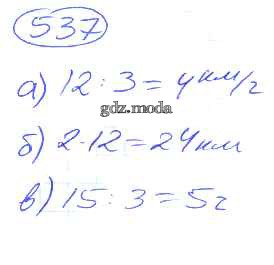 537
а) 12 : 3 = 4 км/г
gdz.moda
б) 2 · 12 = 24 км
в) 15 : 3 = 5 г